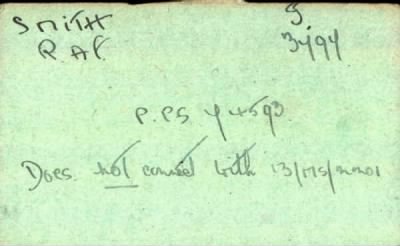 SMITH S.
R.A.F. 3494
P.P.S Y 4593
Does not connect with 13/175/